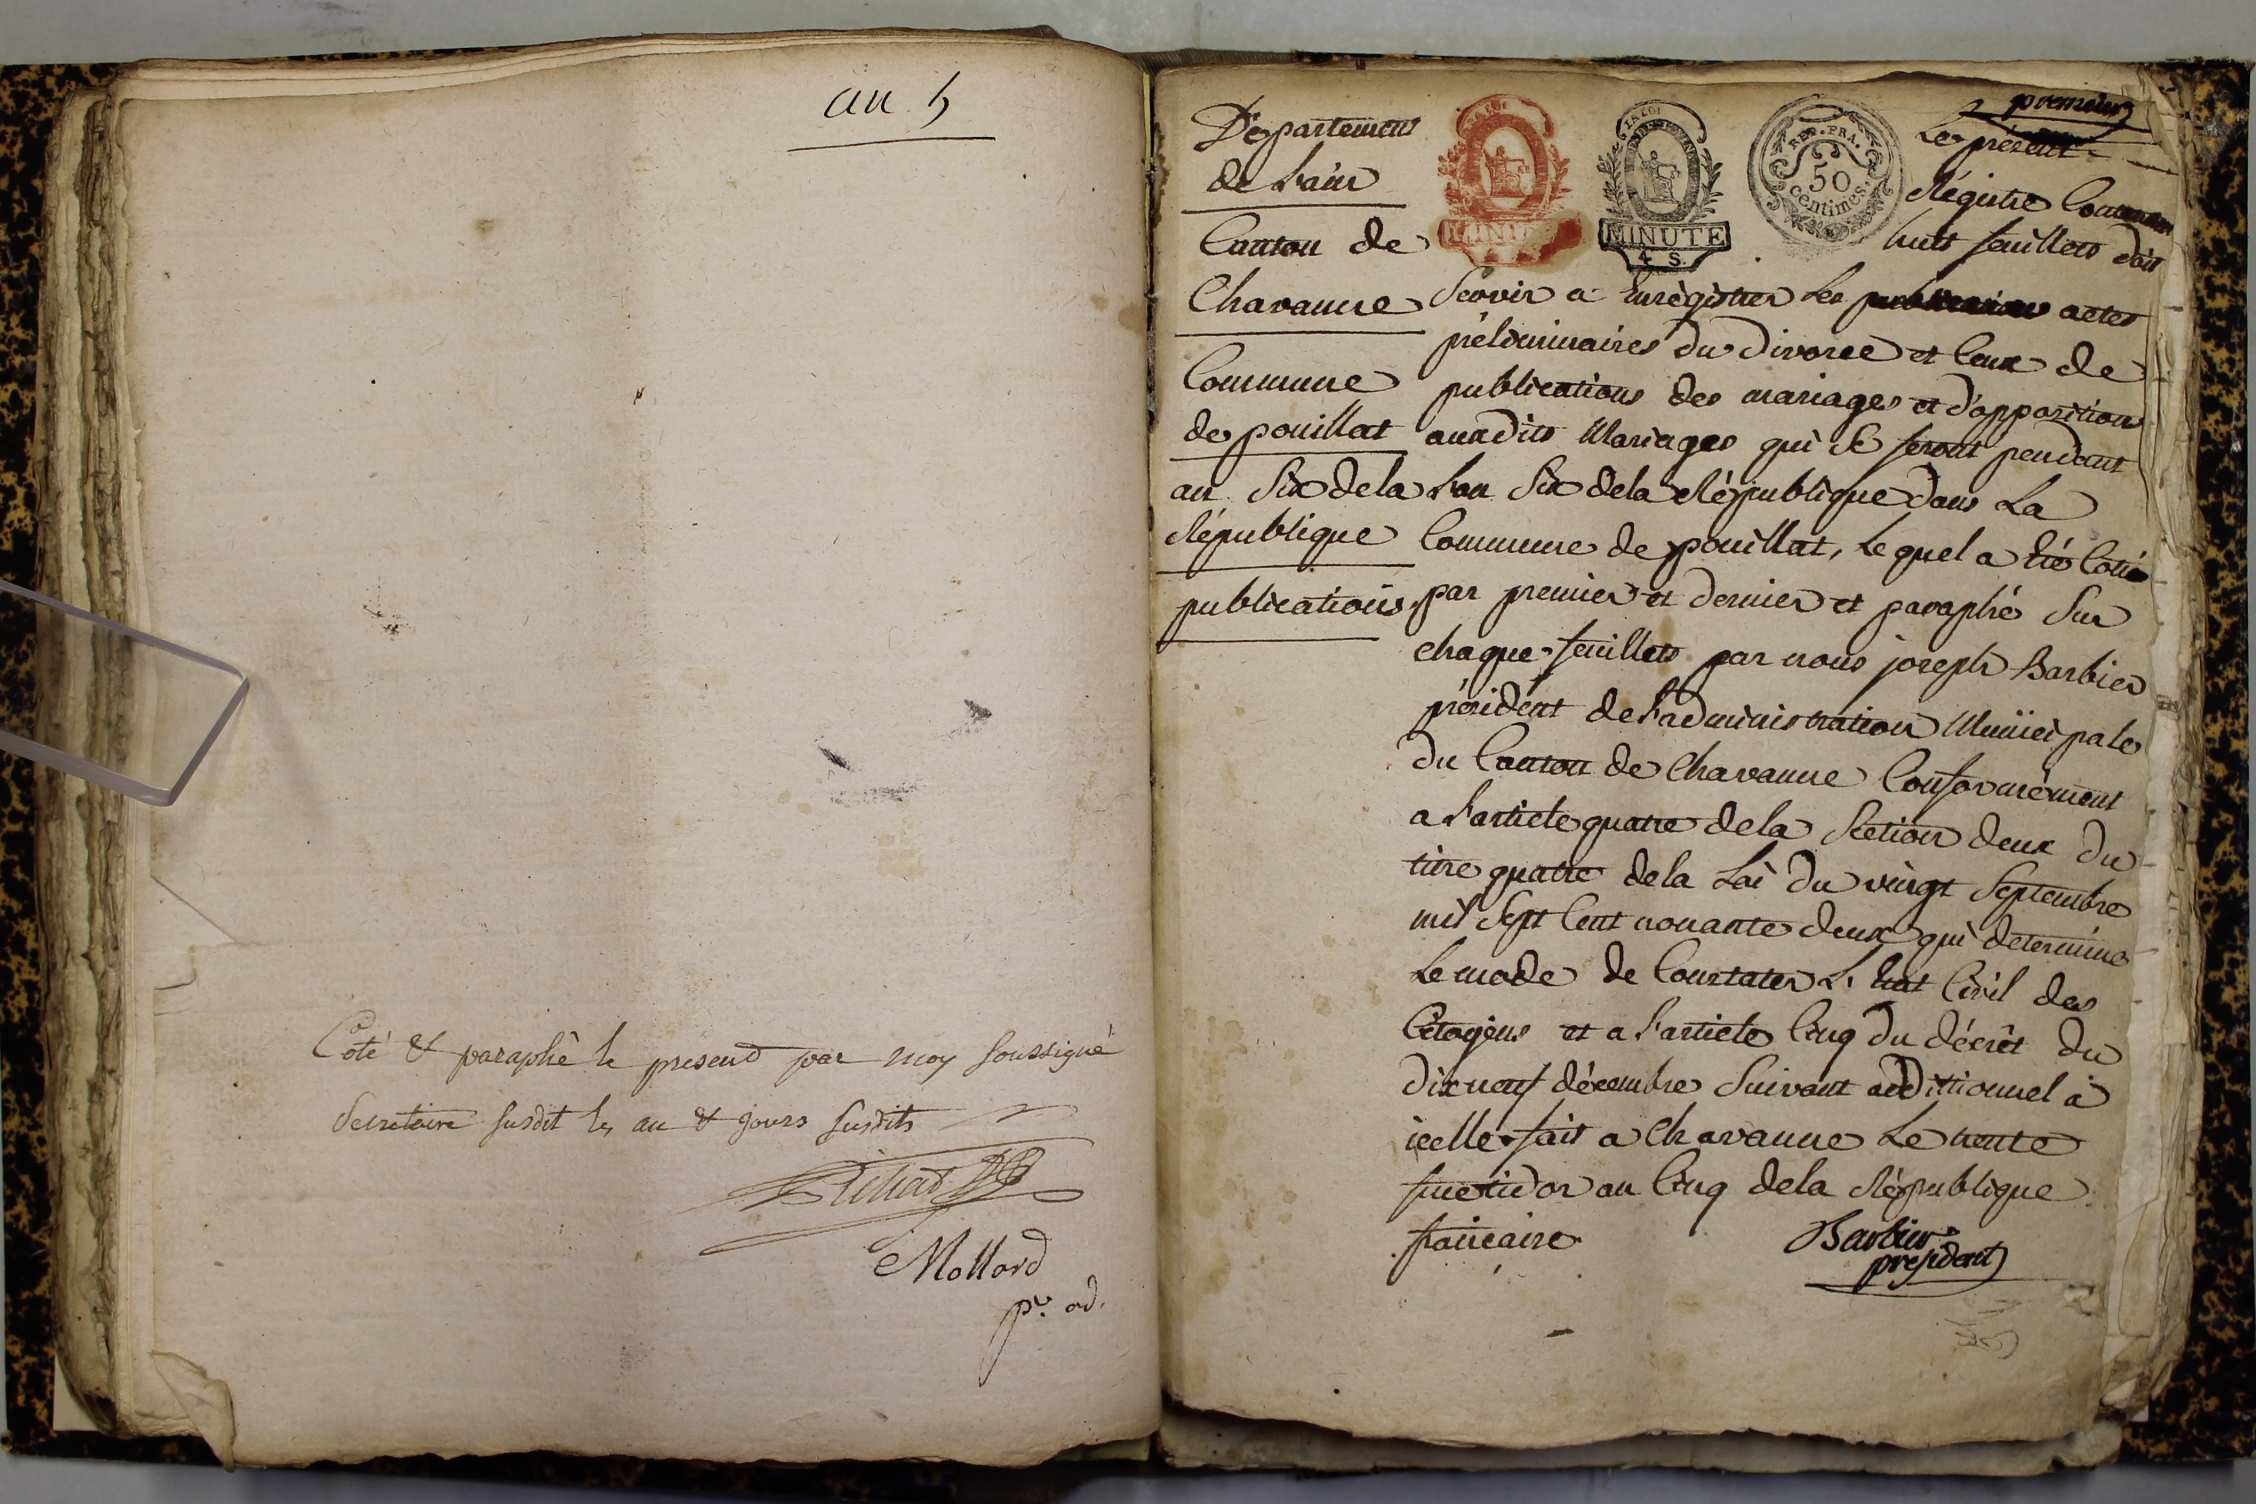 an 5
Coté & paraphé le present par moy soussigné
Secretaire susdit les an & jours susdits
Mollard
pt. ad.
Département
de Lain
Canton de
Chavanne
Commune
de pouillat
an Six de la
République
publications
LA LOI
MINUTE
LA LOI
MINUTE
4 S.
REP. FRA.
50
centimes.
premier
Le présent
Régistre Contenan
huit feuillets doit
Servir a Enrégistrer Les publications actes
préléminaires du divorce et Ceux de
publications des mariages et d'opposition
auxdits Mariages qui se feront pendant
L'an Six de la République dans La
Commune de pouillat, Lequel a été Coté
par premier et dernier et paraphé Sur
chaque feuillets par nous joseph Barbier
président de L'administration Municipale
du Canton de Chavanne Conformément
a L'article quatre de la Section deux du
titre quatre de la Loi du vingt Septembre
mil Sept Cent nonante deux qui determine
Le mode de Constater L'Etat Civil des
Citoyens et a L'article Cinq du décrêt du
dix neuf décembre Suivant additionnel à
icelle fait a Chavanne Le trente
fructidor an Cinq de la République
francaise
Barbier
president